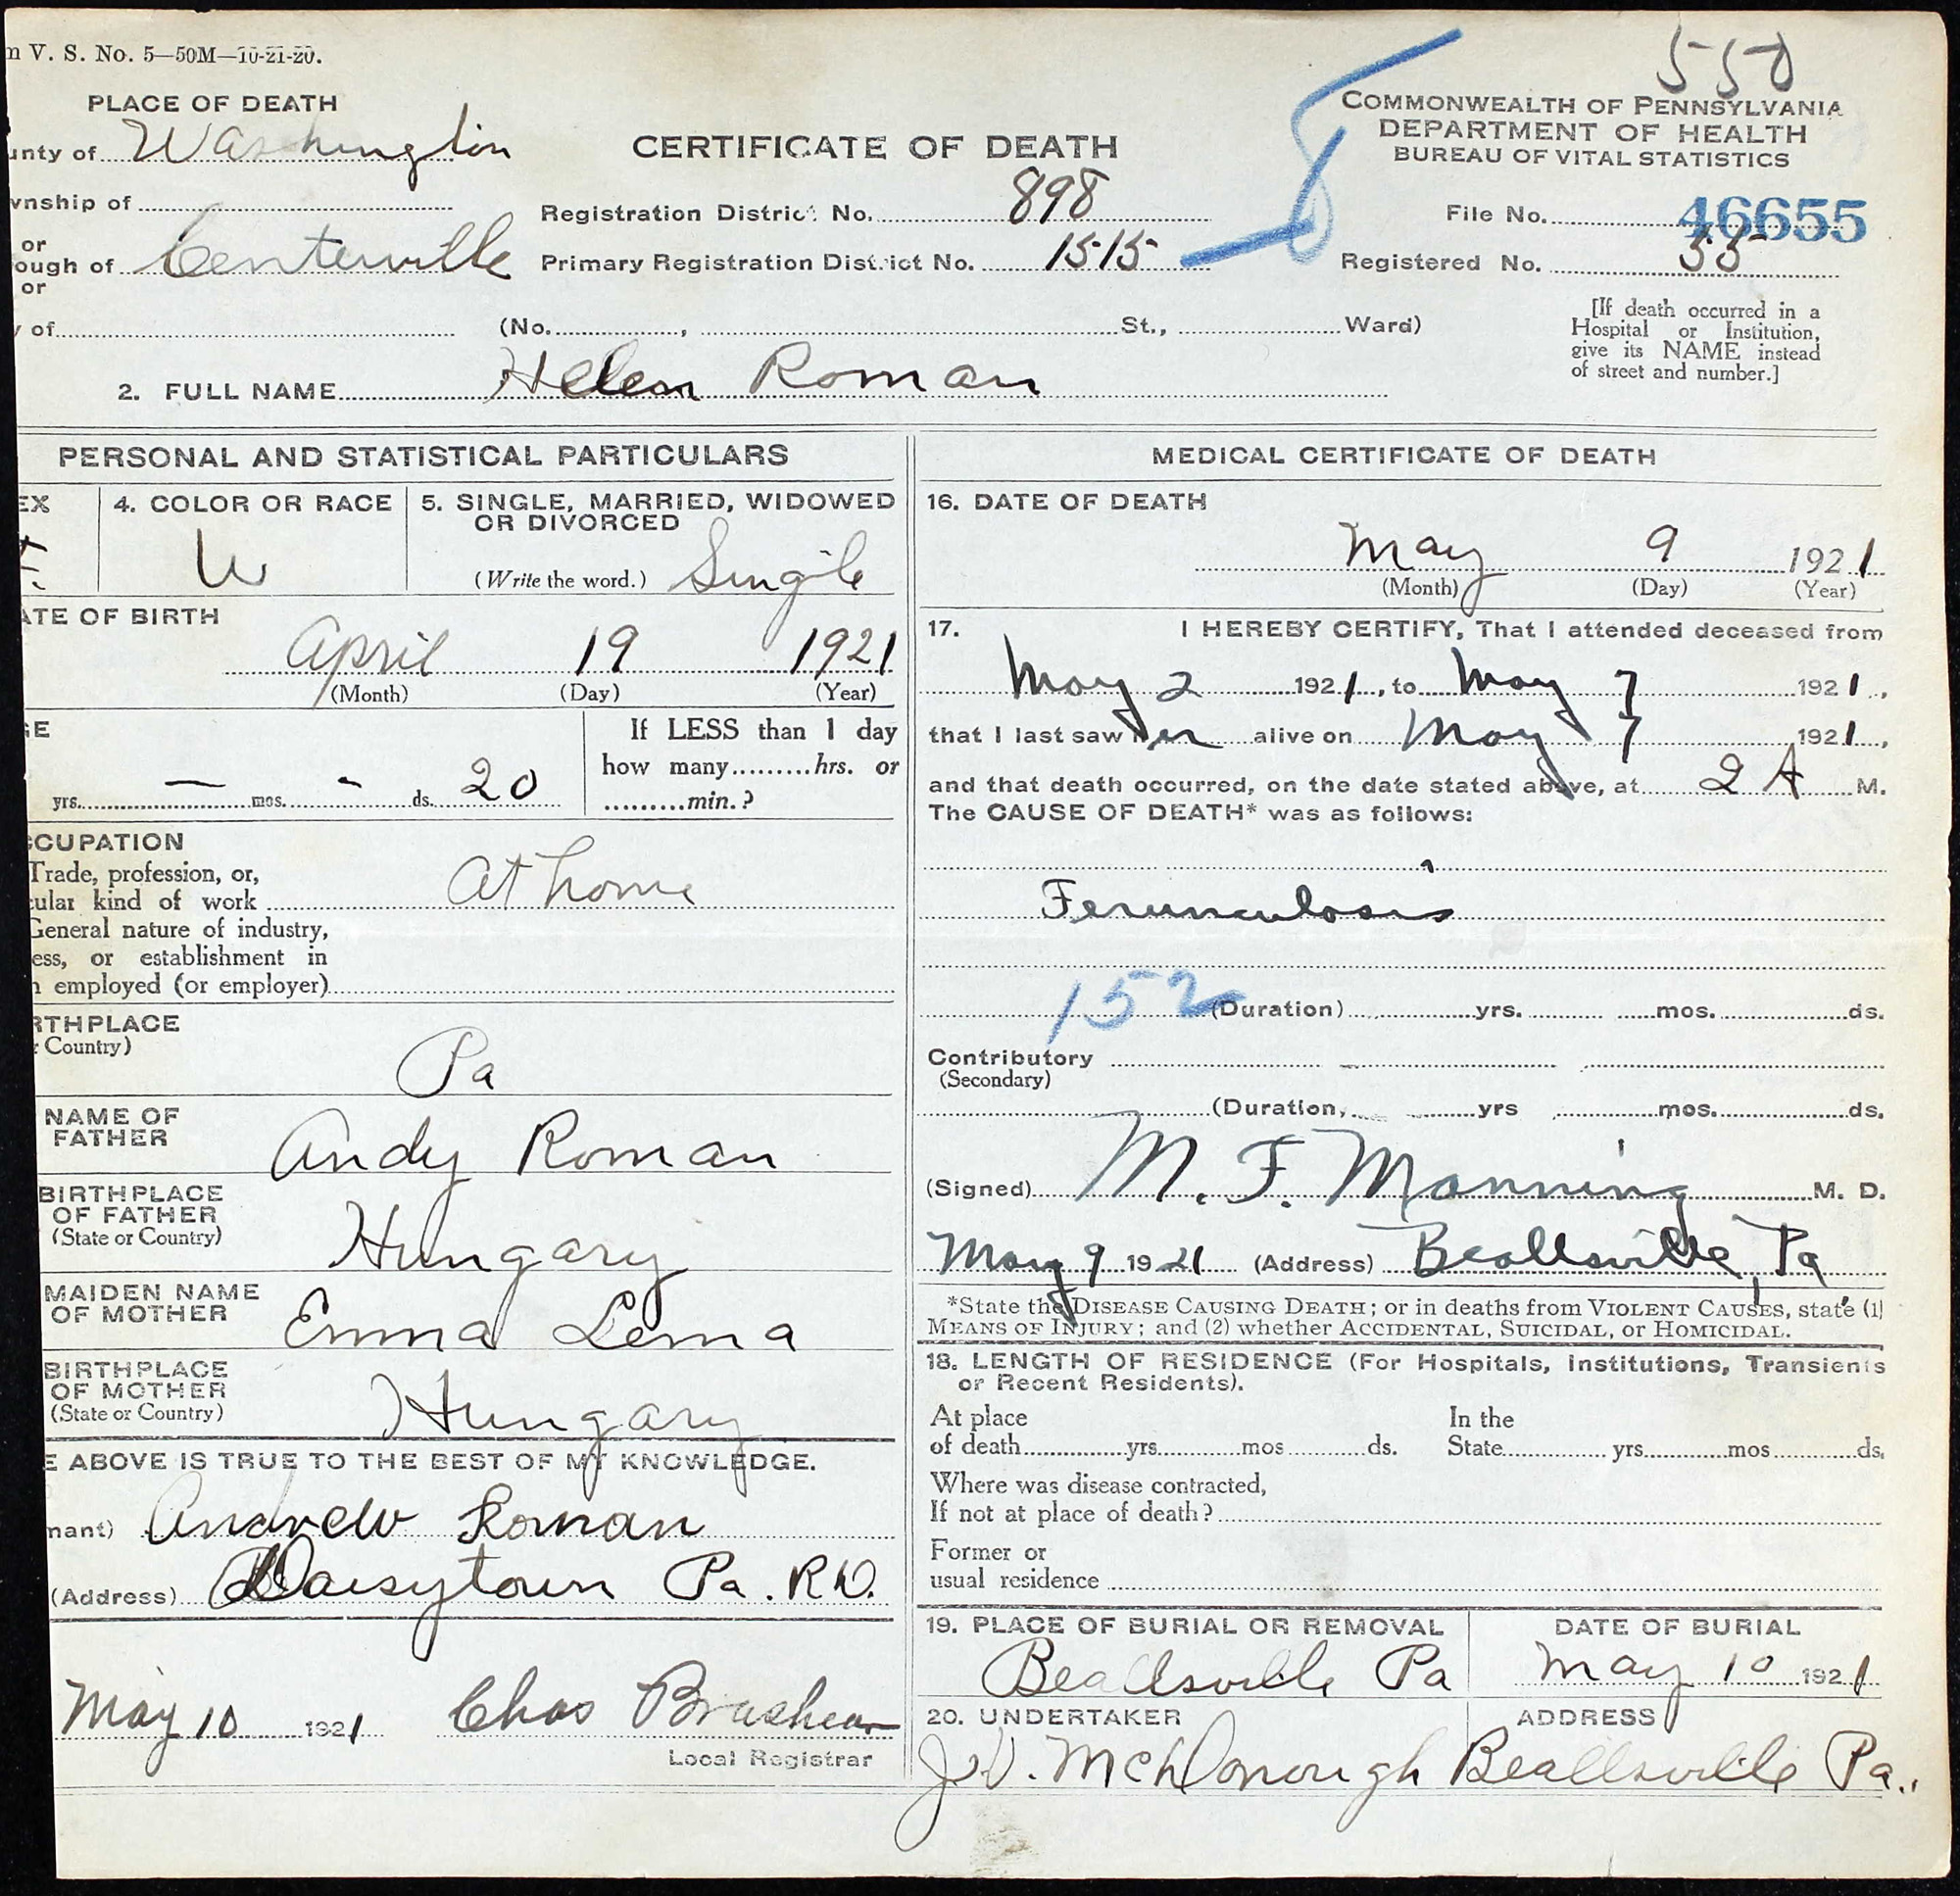 m V. S. No. 5—50M—10-21-20.
550
PLACE OF DEATH
unty of Washington
wnship of
or
ough of Centerville
or
y of
CERTIFICATE OF DEATH
Registration District No. 898
Primary Registration District No. 1515
(No. , St., Ward)
COMMONWEALTH OF PENNSYLVANIA
DEPARTMENT OF HEALTH
BUREAU OF VITAL STATISTICS
File No. 46655
Registered No. 55
[If death occurred in a
Hospital or Institution,
give its NAME instead
of street and number.]
2. FULL NAME Helen Roman
PERSONAL AND STATISTICAL PARTICULARS
EX
F.
4. COLOR OR RACE
W
5. SINGLE, MARRIED, WIDOWED
OR DIVORCED
(Write the word.) Single
ATE OF BIRTH
April 19 1921
(Month) (Day) (Year)
GE
yrs. — mos. - ds. 20
If LESS than 1 day
how many hrs. or
min.?
CCUPATION
Trade, profession, or,
cular kind of work At home
General nature of industry,
ess, or establishment in
h employed (or employer)
RTHPLACE
r Country)
Pa
NAME OF
FATHER
Andy Roman
BIRTHPLACE
OF FATHER
(State or Country)
Hungary
MAIDEN NAME
OF MOTHER
Emma Lema
BIRTHPLACE
OF MOTHER
(State or Country)
Hungary
E ABOVE IS TRUE TO THE BEST OF MY KNOWLEDGE.
mant) Andrew Roman
(Address) Daisytown Pa. R.D.
May 10 1921 Chas Brashear
Local Registrar
MEDICAL CERTIFICATE OF DEATH
16. DATE OF DEATH
May 9 1921
(Month) (Day) (Year)
17. I HEREBY CERTIFY, That I attended deceased from
May 2 1921, to May 7 1921,
that I last saw her alive on May 7 1921,
and that death occurred, on the date stated above, at 2 A M.
The CAUSE OF DEATH* was as follows:
Ferunculosis
152 (Duration) yrs. mos. ds.
Contributory
(Secondary)
(Duration, yrs mos. ds.
(Signed) M. F. Manning M. D.
May 9 1921 (Address) Beallsville, Pa
*State the DISEASE CAUSING DEATH; or in deaths from VIOLENT CAUSES, state (1)
MEANS OF INJURY; and (2) whether ACCIDENTAL, SUICIDAL, or HOMICIDAL.
18. LENGTH OF RESIDENCE (For Hospitals, Institutions, Transients
or Recent Residents).
At place
of death yrs. mos ds.
In the
State yrs. mos ds.
Where was disease contracted,
If not at place of death?
Former or
usual residence
19. PLACE OF BURIAL OR REMOVAL
Beallsville Pa
DATE OF BURIAL
May 10 1921
20. UNDERTAKER
ADDRESS
J.V. McDonough Beallsville Pa.